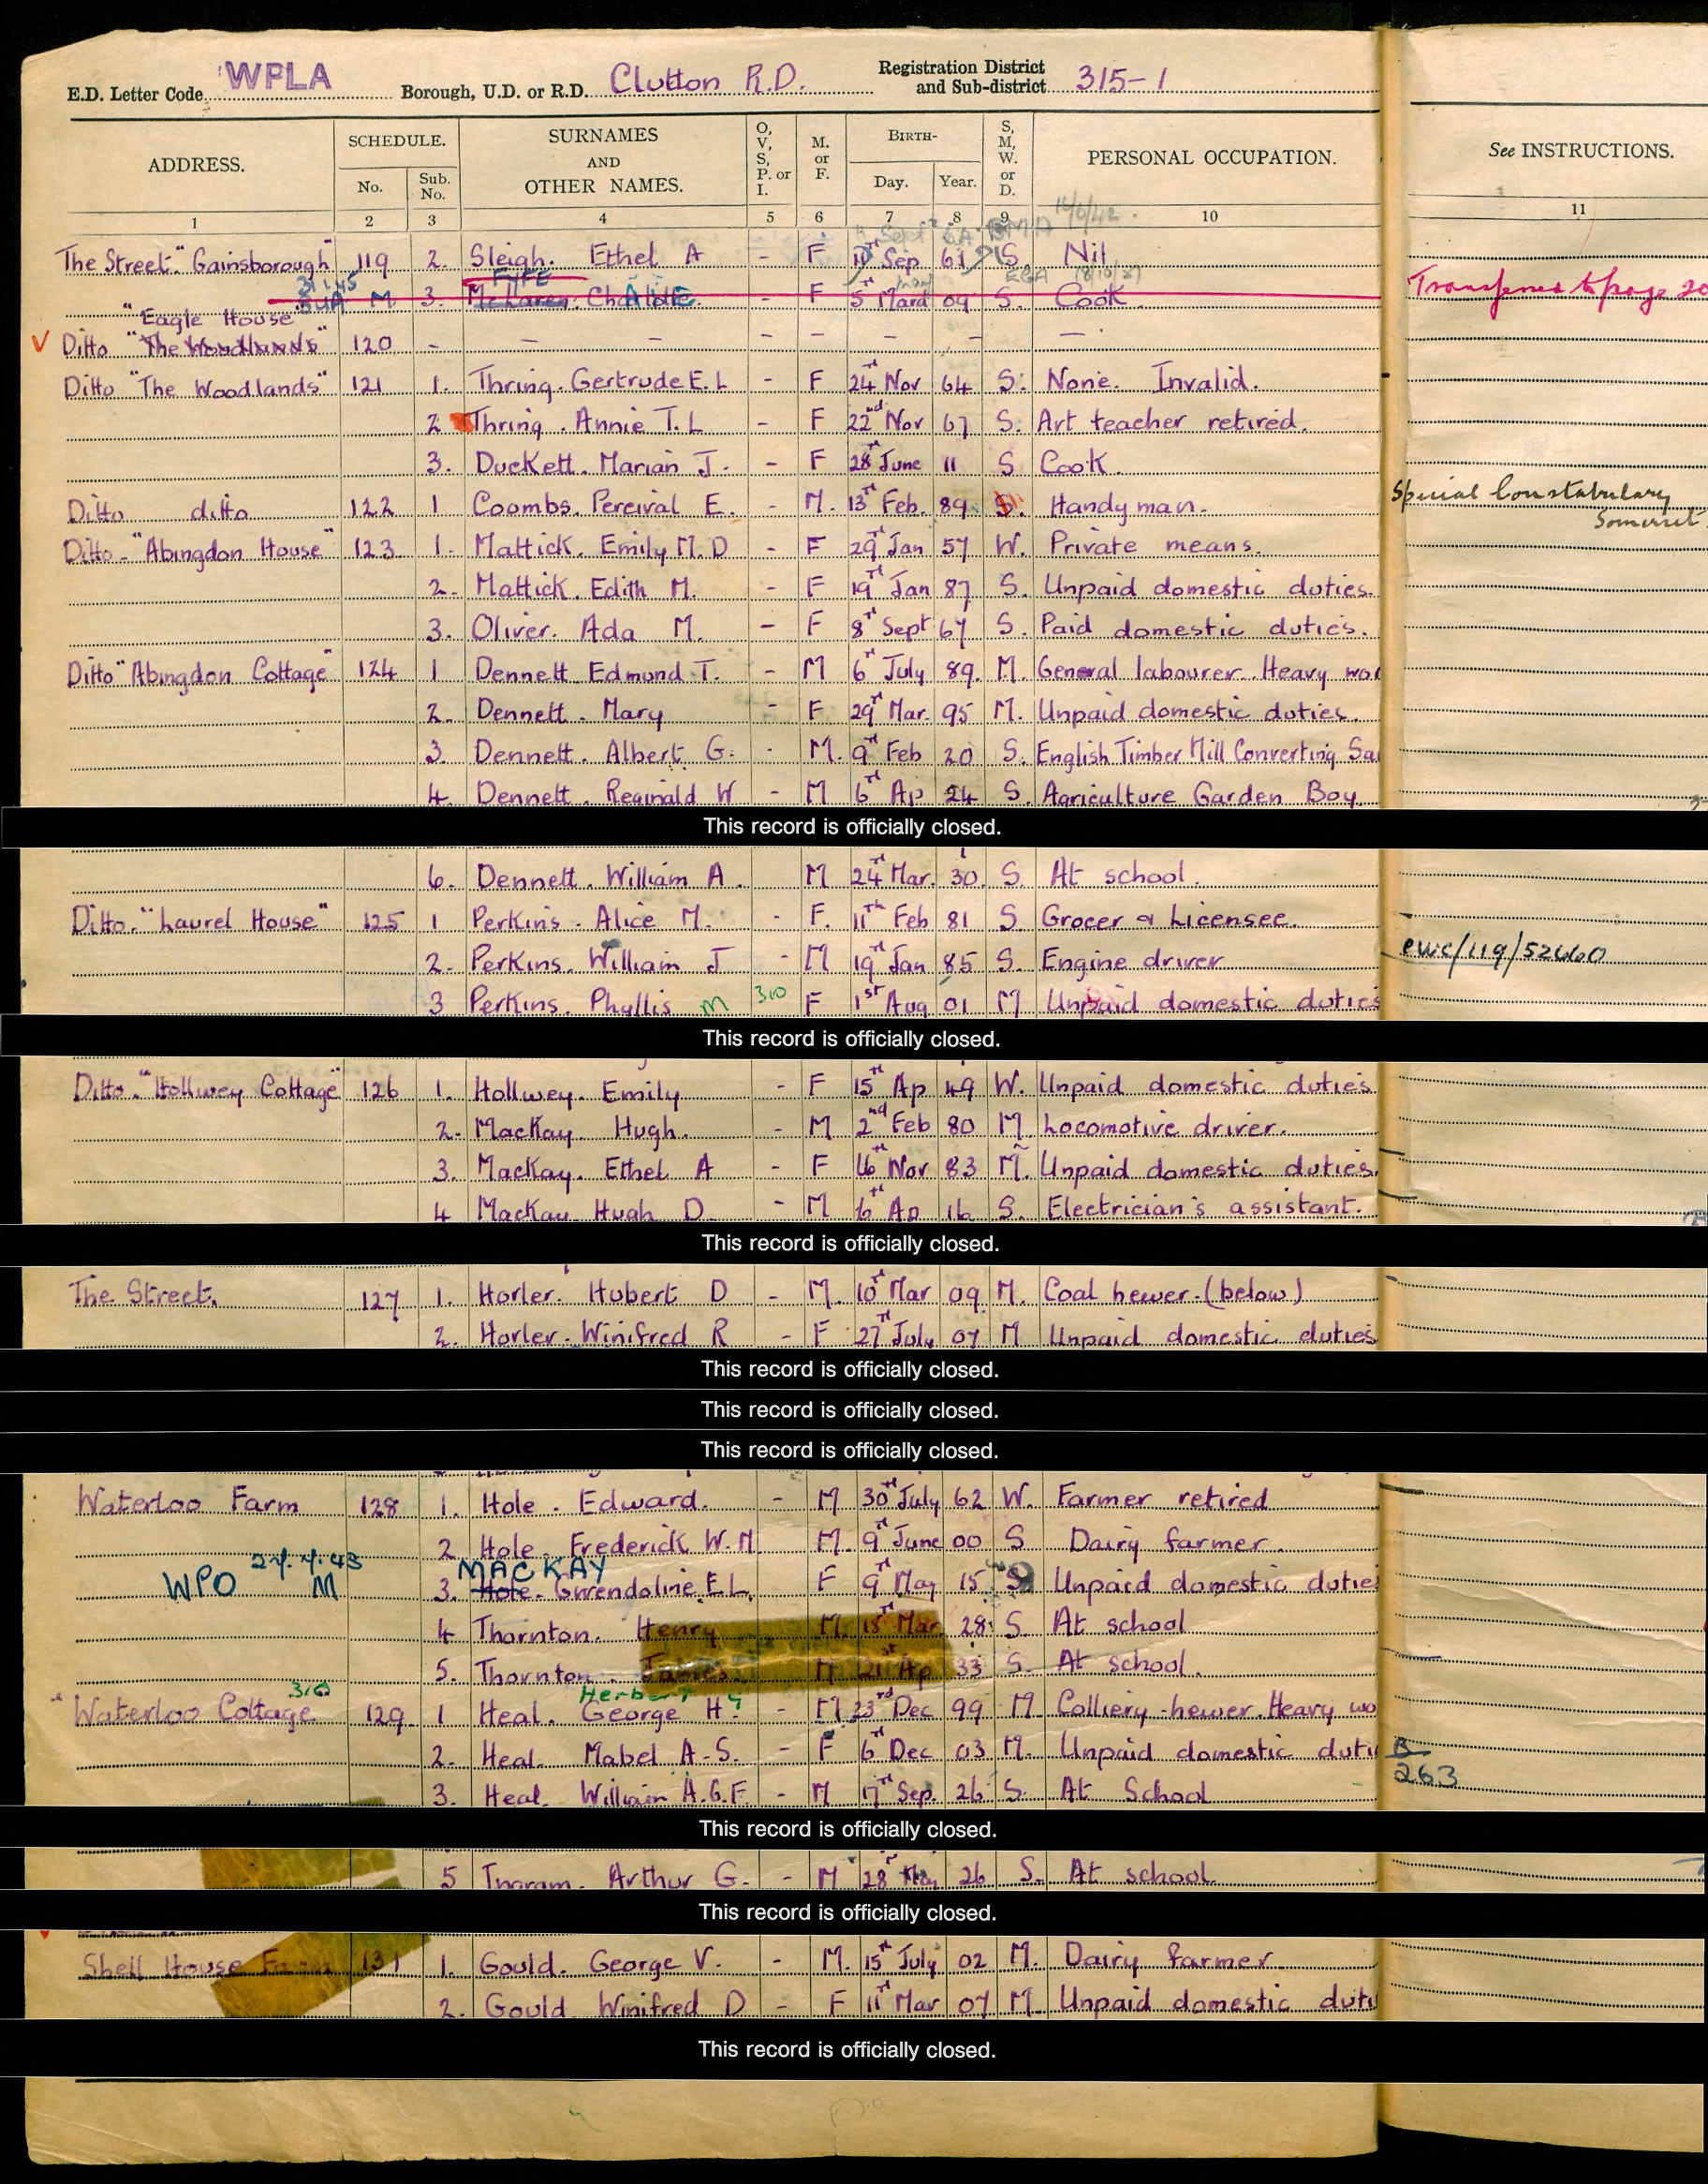 E.D. Letter Code WPLA Borough, U.D. or R.D. Clutton R.D. Registration District and Sub-district 315-1
ADDRESS. SCHEDULE. No. Sub. No. SURNAMES AND OTHER NAMES. O, V, S, P. or I. M. or F. BIRTH- Day. Year. S, M, W. or D. PERSONAL OCCUPATION. See INSTRUCTIONS.
1 2 3 4 5 6 7 8 9 10 11
The Street "Gainsborough" 119 2. Sleigh. Ethel A - F Sep 61 S. Nil
M 3. FYFE - F 5 09 S. Cook Transferred to page 20
"Eagle House"
V Ditto "The Woodlands" 120 - - - - - - - -
Ditto "The Woodlands" 121 1. Thring. Gertrude E. L - F 24 Nov 64 S. None. Invalid.
2 Thring. Annie T. L - F 22nd Nov 67 S. Art teacher retired.
3. Duckett. Marian J. - F 28 June 11 S. Cook.
Ditto ditto 122 1 Coombs. Percival E. - M. 13 Feb. 89 Handy man. Special Constabulary Somerset
Ditto - "Abingdon House" 123 1. Mattick. Emily M. D - F 29 Jan 57 W. Private means.
2. Mattick. Edith M. - F 19 Jan 87 S. Unpaid domestic duties.
3. Oliver. Ada M. - F 8 Sept 67 S. Paid domestic duties.
Ditto "Abingdon Cottage" 124 1 Dennett Edmund T. - M 6 July 89. M. General labourer. Heavy wor
2. Dennett. Mary - F 29 Mar. 95 M. Unpaid domestic duties.
3 Dennett. Albert G. - M. 9 Feb 20 S. English Timber Mill Converting Sa
4. Dennett. Reginald W - M 6 Ap 24 S. Agriculture Garden Boy.
This record is officially closed.
6. Dennett. William A. M 24 Mar. 30. S. At school.
Ditto. "Laurel House" 125 1 Perkins. Alice M. - F. 11th Feb 81 S Grocer & Licensee.
2. Perkins. William J - M 19 Jan 85 S. Engine driver
3 Perkins. Phyllis M 310 F 1st Aug 01 M Unpaid domestic duties
This record is officially closed.
Ditto. "Hollwey Cottage" 126 1. Hollwey. Emily - F 15 Ap 49 W. Unpaid domestic duties.
2. MacKay. Hugh. - M 2nd Feb 80 M Locomotive driver.
3. MacKay. Ethel A - F 16 Nov 83 M. Unpaid domestic duties.
4 MacKay Hugh D - M 6th Ap 16 S. Electrician's assistant.
This record is officially closed.
The Street. 127 1. Horler. Hubert D - M. 10 Mar 09. M. Coal hewer. (below)
2. Horler. Winifred R - F 27 July 07 M Unpaid domestic duties
This record is officially closed.
This record is officially closed.
This record is officially closed.
Waterloo Farm 128 1. Hole. Edward. - M 30 July 62 W. Farmer retired
2 Hole. Frederick W. M. M. 9 June 00 S Dairy farmer.
WPO 27.4.43 M MACKAY
3. Hole. Gwendoline E L. F 9 May 15 S Unpaid domestic dutie
4 Thornton. Henry M. 15 Mar 28 S. At school
5. Thornton. James. M 21st Ap 33 S. At school.
310 Herbert
"Waterloo Cottage 129 1 Heal. George H. - M 23rd Dec 99 M Colliery-hewer. Heavy wo
2. Heal. Mabel A. S. - F 6 Dec 03 M. Unpaid domestic duti B 263
3. Heal. William A.G.F. - M 17 Sep. 26 S. At School
This record is officially closed.
5 Ingram. Arthur G. - M 28 26 S. At school.
This record is officially closed.
Shell House Farm 131 1. Gould. George V. - M. 15 July 02 M. Dairy farmer
2. Gould Winifred D - F 11 Mar 07 M. Unpaid domestic duti
This record is officially closed.